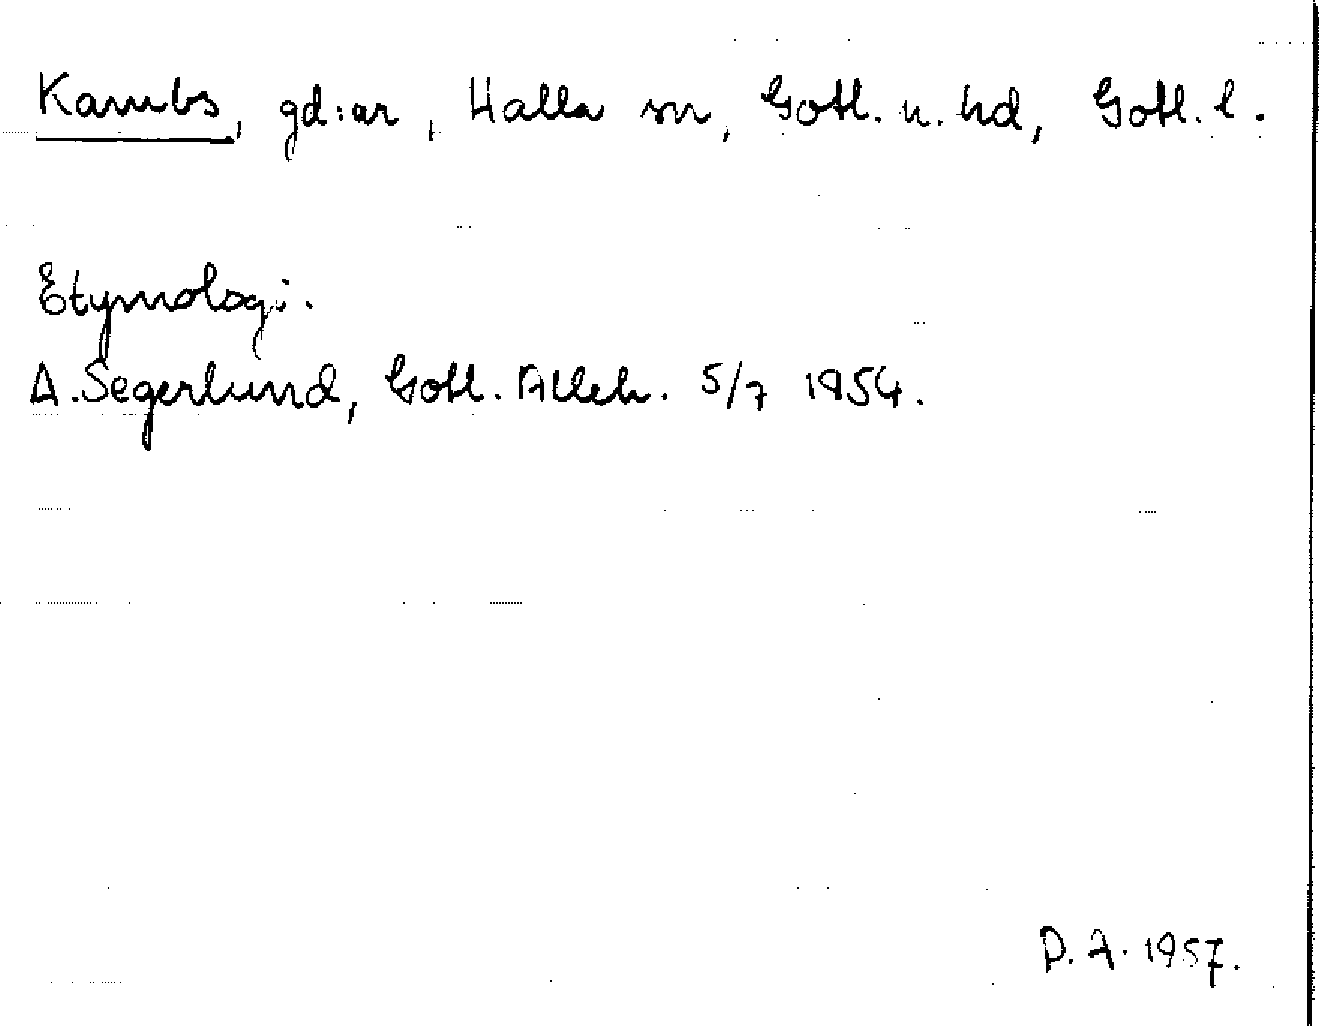 Kambs, gd:ar, Halla sn, Gotl. n. hd, Gotl. l.
Etymologi.
A. Segerlund, Gotl. Alleh. 5/7 1954.
D. A. 1957.